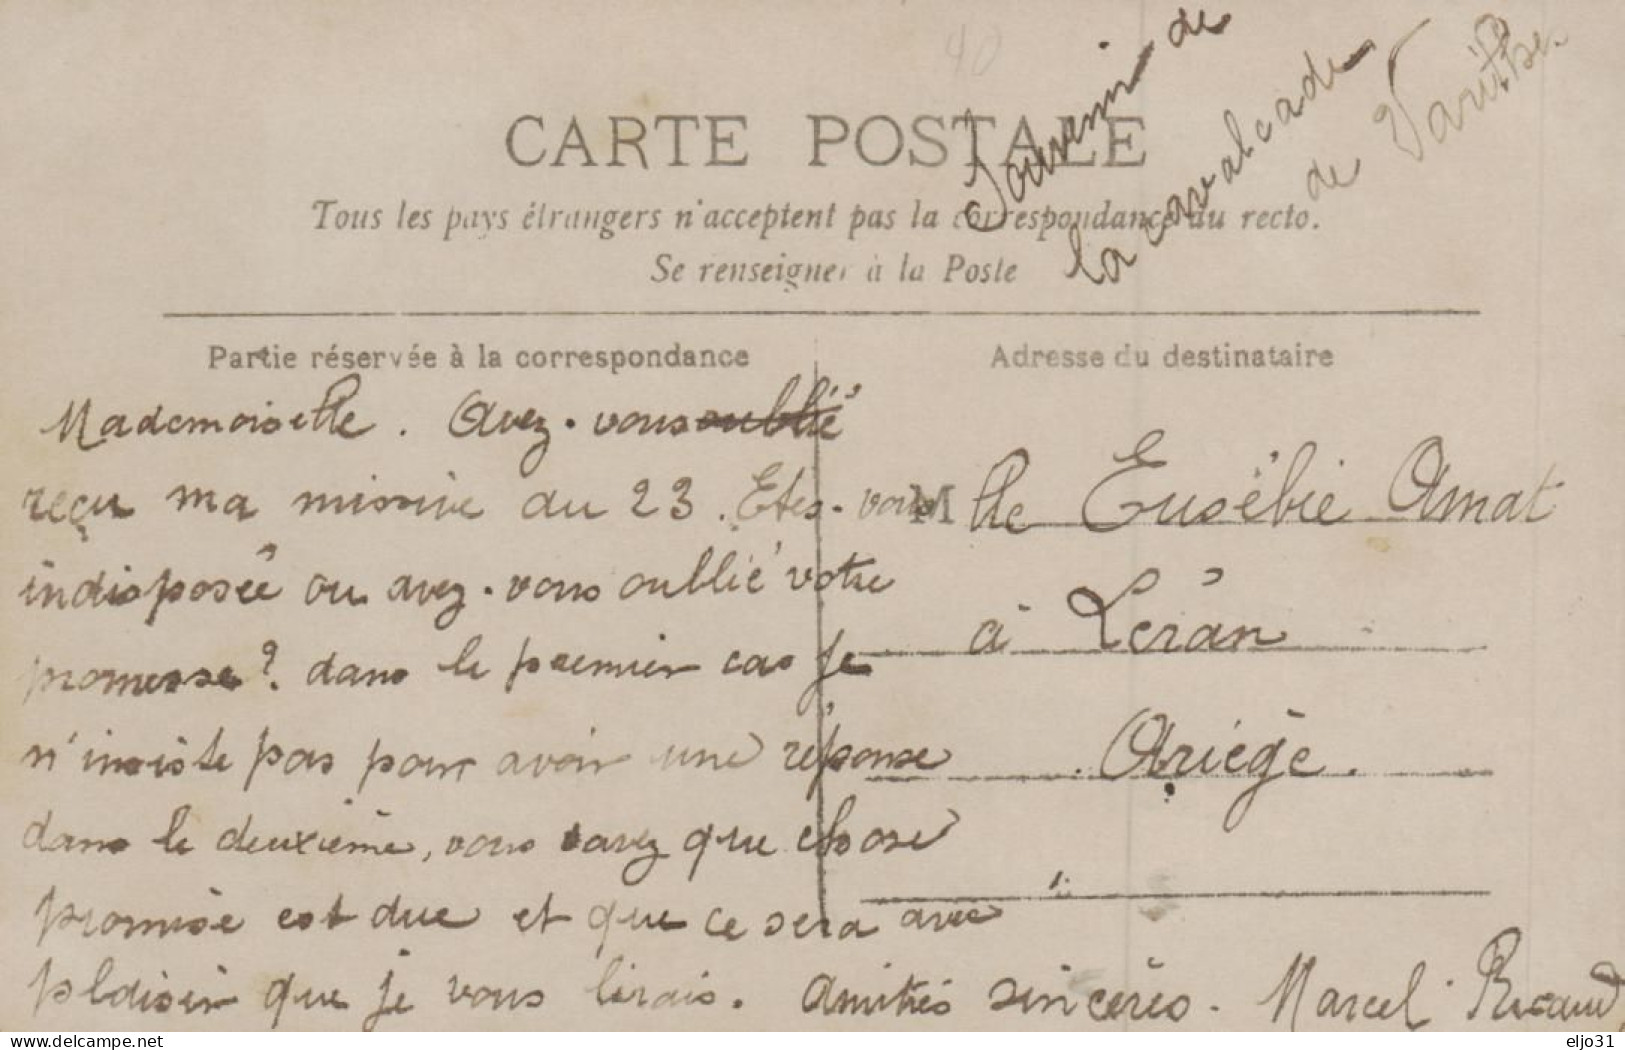 40
Souvenir de
la cavalcade
de
CARTE POSTALE
Tous les pays étrangers n'acceptent pas la correspondance au recto.
Se renseigner à la Poste
Partie réservée à la correspondance
Mademoiselle. Avez-vous oublié
reçu ma missive du 23. Etes-vous
indisposée ou avez-vous oublié votre
promesse? dans le premier cas je
n'insiste pas pour avoir une réponse
dans le deuxième, vous savez que chose
promise est due et que ce sera avec
plaisir que je vous lirais. Amitiés sincères. Marcel Ricaud
Adresse du destinataire
Mlle Eusèbie Amat
à Léran
Ariège.
delcampe.net
eljo31